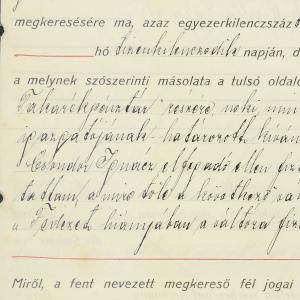 megkeresésére ma, azaz egyezerkilenczszáz
hó tizenkilenczedik napján, d
a melynek szószerinti másolata a tulsó oldal
Takarékpénztár részére, neki mint
igazgatójának határozott kíván
Csondor Ignácz elfogadó ellen fiz
tattam, a miről a következő va
a Fedezet hiányában a váltóra fiz
Miről, a fent nevezett megkereső fél jogai